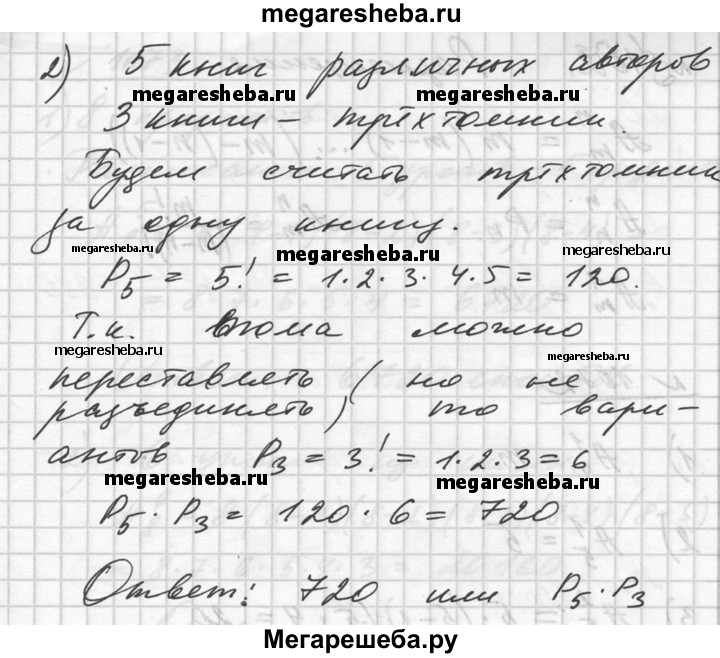 megaresheba.ru
2) 5 книг различных авторов
megaresheba.ru megaresheba.ru
3 книги – трёхтомник.
Будем считать трёхтомник
за одну книгу.
megaresheba.ru megaresheba.ru megaresheba.ru
P₅ = 5! = 1·2·3·4·5 = 120.
Т.к. тома можно
megaresheba.ru megaresheba.ru
переставлять (но не
разъединять) то вари-
антов P₃ = 3! = 1·2·3 = 6
megaresheba.ru megaresheba.ru
P₅·P₃ = 120·6 = 720
Ответ: 720 или P₅·P₃
Мегарешеба.ру